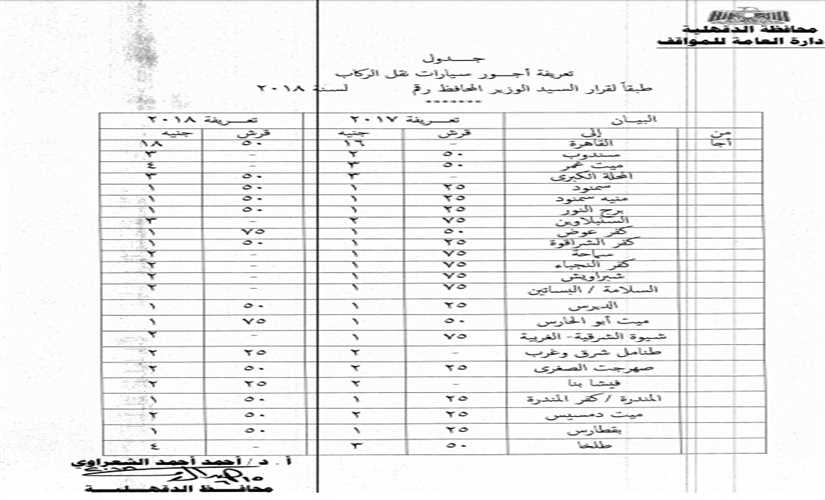 محافظة الدقهلية
دارة العامة للمواقف
جدول
تعريفة أجور سيارات نقل الركاب
طبقاً لقرار السيد الوزير المحافظ رقم لسنة ٢٠١٨
*******
البيان تعريفة ٢٠١٧ تعريفة ٢٠١٨
من إلى قرش جنيه قرش جنيه
أجا القاهرة - ١٦ ٥٠ ١٨
سندوب ٥٠ ٢ - ٣
ميت غمر ٥٠ ٣ - ٤
المحلة الكبرى - ٣ ٥٠ ٣
سمنود ٢٥ ١ ٥٠ ١
منيه سمنود ٢٥ ١ ٥٠ ١
برج النور ٢٥ ١ ٥٠ ١
السنبلاوين ٧٥ ٢ - ٣
كفر عوض ٥٠ ١ ٧٥ ١
كفر الشراقوة ٢٥ ١ ٥٠ ١
سماحة ٧٥ ١ - ٢
كفر النجباء ٧٥ ١ - ٢
شبراويش ٧٥ ١ - ٢
السلامة / البساتين ٧٥ ١ - ٢
الديرس ٢٥ ١ ٥٠ ١
ميت أبو الحارس ٥٠ ١ ٧٥ ١
شيوة الشرقية- الغربية ٧٥ ١ - ٢
طنامل شرق وغرب - ٢ ٢٥ ٢
صهرجت الصغرى ٢٥ ٢ ٥٠ ٢
فيشا بنا - ٢ ٢٥ ٢
المندرة / كفر المندرة ٢٥ ١ ٥٠ ١
ميت دمسيس ٢٥ ٢ ٥٠ ٢
بقطارس ٢٥ ١ ٥٠ ١
طلخا ٥٠ ٣ - ٤
أ . د / أحمد أحمد الشعراوي
محافظ الدقهلية